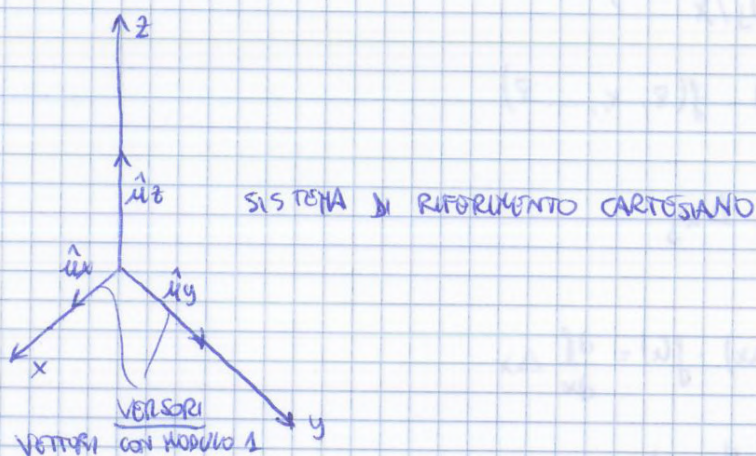 z
ûz
SISTEMA DI RIFERIMENTO CARTESIANO
ûx
ûy
x
VERSORI
y
VETTORI CON MODULO 1